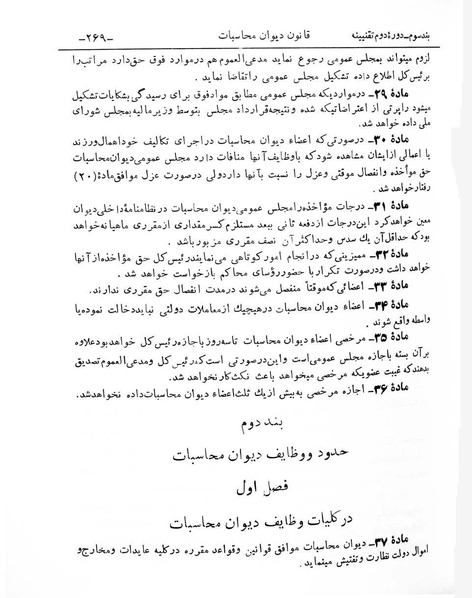 بند سوم ـ دورهٔ دوم تقنینیه
قانون دیوان محاسبات
ـ ۲۶۹ ـ
لزوم میتواند بمجلس عمومی رجوع نماید مدعی‌العموم هم درموارد فوق حق دارد مراتب را
برئیس کل اطلاع داده تشکیل مجلس عمومی را تقاضا نماید .
مادهٔ ۲۹ـ درمواردیکه مجلس عمومی مطابق مواد فوق برای رسیدگی بشکایات تشکیل
میشود راپرتی از اعتراضاتیکه شده ونتیجه قرارداد مجلس بتوسط وزیر مالیه بمجلس شورای
ملی داده خواهد شد.
مادهٔ ۳۰ـ درصورتی که اعضاء دیوان محاسبات دراجرای تکالیف خود اهمال ورزند
یا اعمالی ازایشان مشاهده شود که باوظایف آنها منافات دارد مجلس عمومی دیوان محاسبات
حق مؤاخذه وانفصال موقتی وعزل را نسبت بآنها دارد ولی درصورت عزل موافق مادهٔ (۲۰)
رفتار خواهد شد.
مادهٔ ۳۱ـ درجات مؤاخذه را مجلس عمومی دیوان محاسبات درنظامنامهٔ داخلی دیوان
معین خواهد کرد این درجات ازدفعه ثانی ببعد مستلزم کسر مقداری ازمقرری ماهیانه خواهد
بود که حداقل آن یك سدس وحداکثر آن نصف مقرری مزبور باشد .
مادهٔ ۳۲ـ ممیزینی که درانجام امور کوتاهی می‌نمایند رئیس کل حق مؤاخذه ازآنها
خواهد داشت ودرصورت تکرار با حضور رؤسای محاکم بازخواست خواهد شد .
مادهٔ ۳۳ـ اعضائی که موقتاً منفصل می‌شوند درمدت انفصال حق مقرری ندارند.
مادهٔ ۳۴ـ اعضاء دیوان محاسبات درهیچیك ازمعاملات دولتی نباید دخالت نموده یا
واسطه واقع شوند .
مادهٔ ۳۵ـ مرخصی اعضاء دیوان محاسبات تا سه روز باجازه رئیس کل خواهد بود علاوه
برآن بسته باجازه مجلس عمومی است واین درصورتی است که رئیس کل ومدعی‌العموم تصدیق
بدهند که غیبت عضویکه مرخصی میخواهد باعث نکث کار نخواهد شد.
مادهٔ ۳۶ـ اجازه مرخصی به بیش از یك ثلث اعضاء دیوان محاسبات داده نخواهد شد.
بند دوم
حدود ووظایف دیوان محاسبات
فصل اول
درکلیات وظایف دیوان محاسبات
مادهٔ ۳۷ـ دیوان محاسبات موافق قوانین وقواعد مقرره درکلیه عایدات ومخارج و
اموال دولت نظارت وتفتیش مینماید.